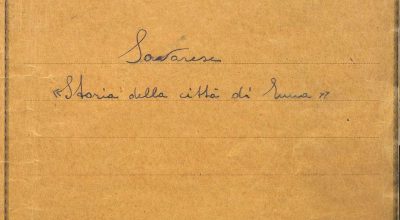 Savarese
«Storia della città di Enna»